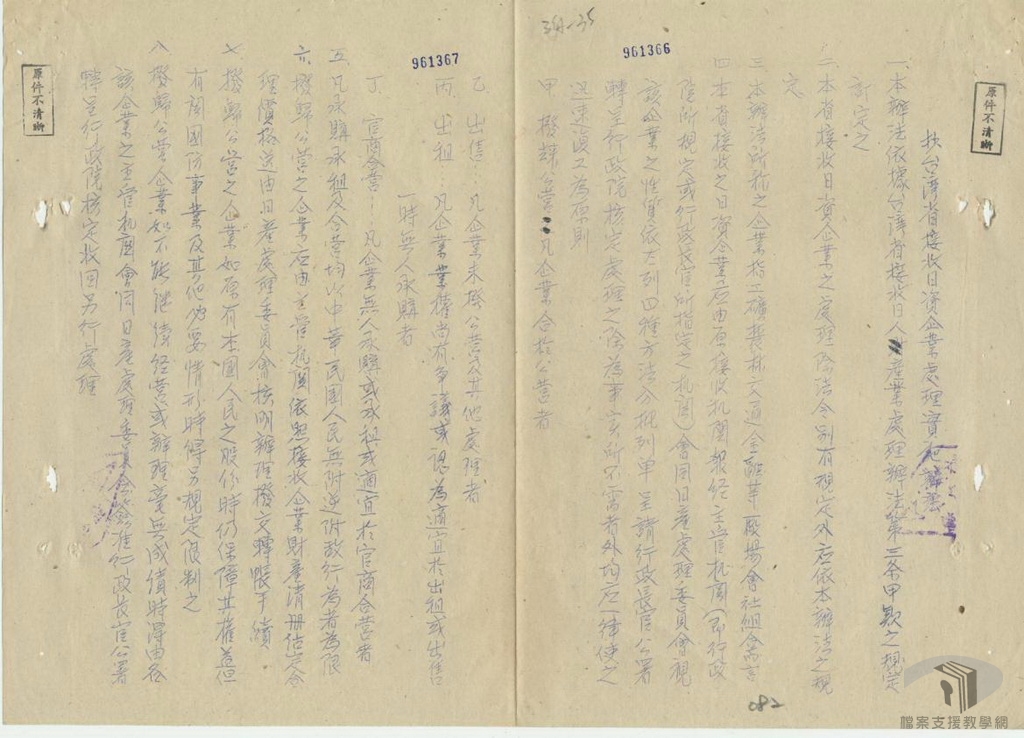 34-35
961366
原件不清晰
抄台灣省接收日資企業處理實施辦法
一本辦法依據台灣省接收日人產業處理辦法第三条甲欵之規定
訂定之
二本省接收日資企業之處理除法令別有規定外应依本辦法之規
定
三本辦法所称之企業指工礦農林交通金融等一般場會社組合而言
四本省接收之日資企業应由原接收机関報経主管机関(即行政
院所規定或行政長官所指定之机関)會同日產處理委員會視
該企業之性質依下列四種方法分批列单呈請行政長官公署
轉呈行政院核定處理之除為事实所不需者外均应一律使之
迅速復工為原則
甲 撥歸公营:凡企業合於公营者
082
961367
原件不清晰
乙 出售:凡企業未撥公营及其他處理者
丙 出租:凡企業業權尚有争議或認為適宜於出租或出售
一時無人承購者
丁 官商合营:凡企業無人承購或承租或適宜於官商合营者
五凡承購承租及合营均以中華民國人民無附逆附敵行為者為限
六撥歸公营之企業应由主管机関依照接收企業財產清册估定合
理價格送由日產處理委員會核明辦理撥交轉帳手續
七撥歸公营之企業如原有本國人民之股份時仍保障其權益但
有関國防事業及其他必要情形時得另規定限制之
八撥歸公营企業如不能継續経营或辦理毫無成績時得由各
該企業之主管机関會同日產處理委員會准行政長官公署
轉呈行政院核定收回另行處理
檔案支援教學網